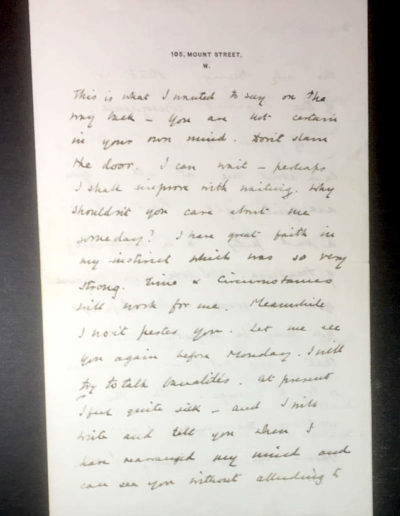 105, MOUNT STREET,
W.
This is what I wanted to say on the
way back – you are not certain
in your own mind. Don't slam
the door. I can wait – perhaps
I shall improve with waiting. Why
shouldn't you care about me
someday? I have great faith in
my instinct which was so very
strong. Time & Circumstances
will work for me. Meanwhile
I wont pester you. Let me see
you again before Monday. I will
try to talk banalités. At present
I feel quite sick – and I will
write and tell you when I
have rearranged my mind and
can see you without alluding to